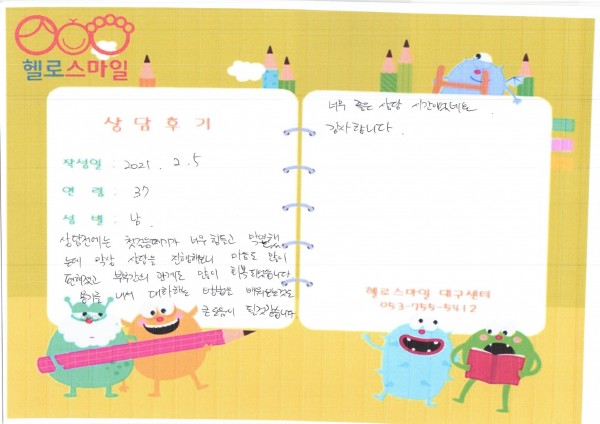 헬로스마일
상담후기
작성일 : 2021. 2. 5
연 령 : 37
성 별 : 남
상담전에는 첫걸음떼기가 너무 힘들고 막연했
는데 막상 상담을 진행해보니 마음도 많이
편해졌고 부부간의 관계도 많이 회복되었습니다
용기를 내서 대화하는 방법을 배워본것도
큰 도움이 된것같습니다
너무 좋은 상담 시간이었네요.
감사합니다.
헬로스마일 대구센터
053-755-5412